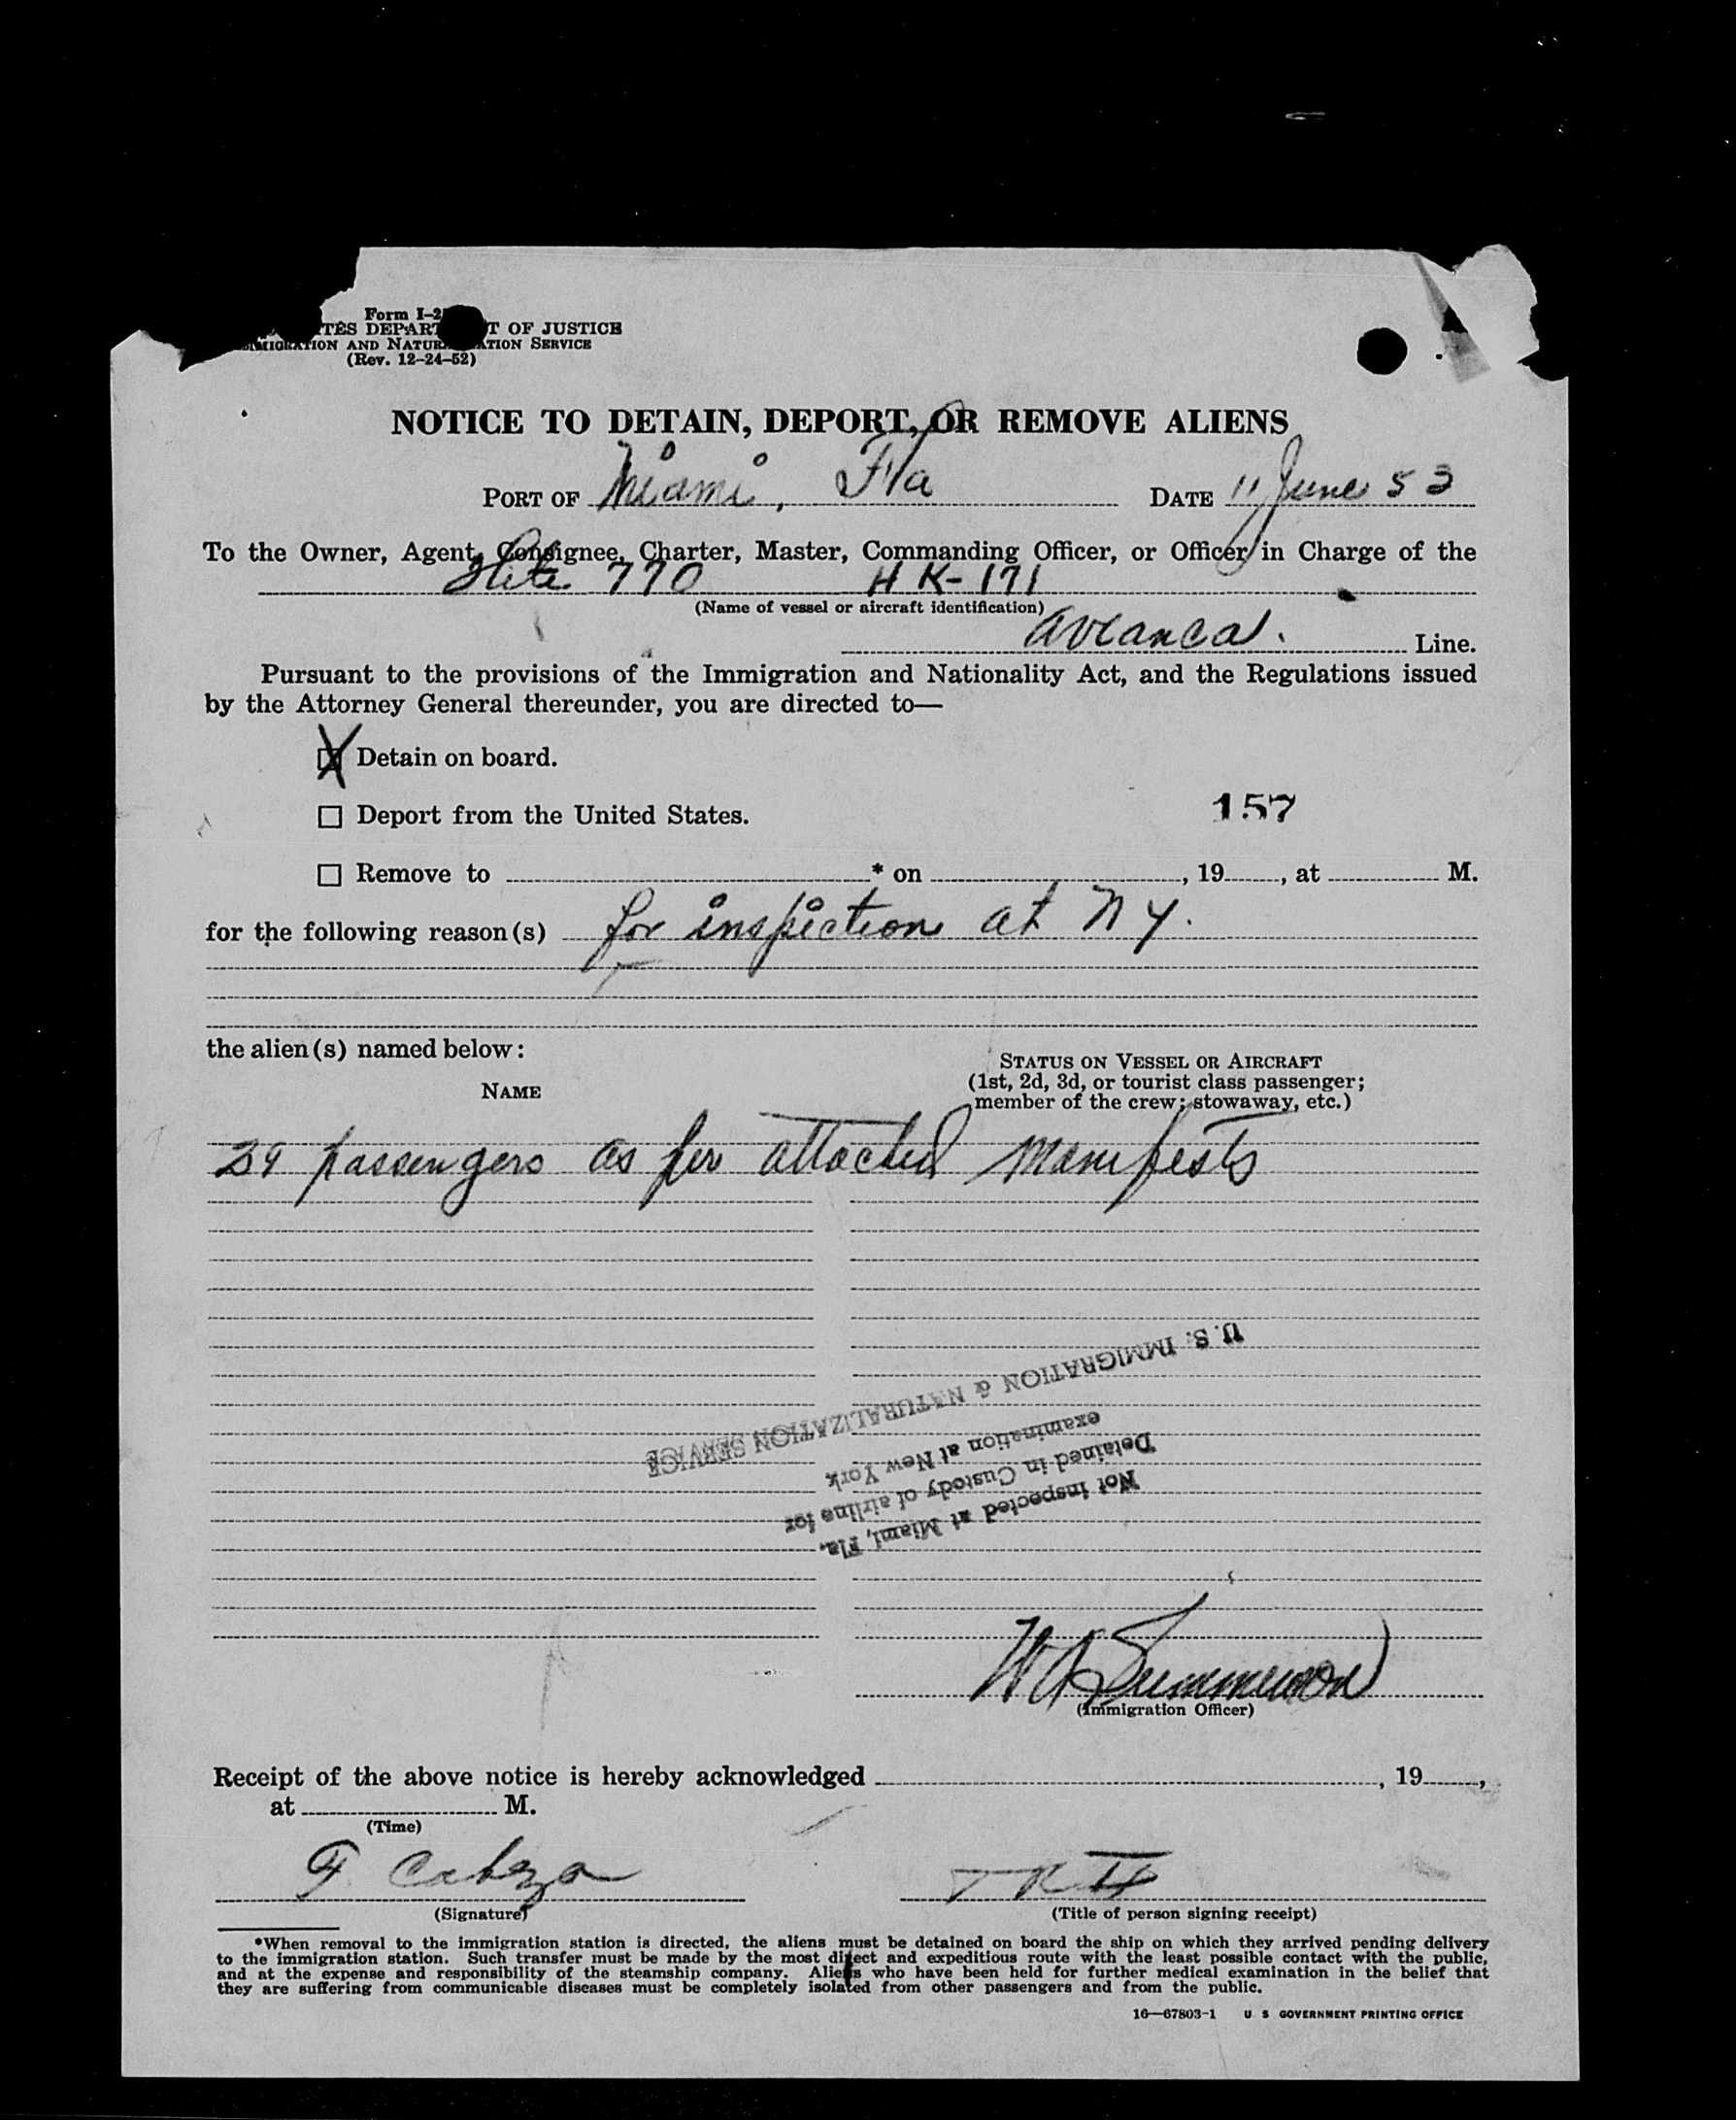 Form I-2
TES DEPART T OF JUSTICE
MIGRATION AND NATUR ATION SERVICE
(Rev. 12-24-52)
NOTICE TO DETAIN, DEPORT, OR REMOVE ALIENS
PORT OF Miami, Fla DATE 11 June 53
To the Owner, Agent, Consignee, Charter, Master, Commanding Officer, or Officer in Charge of the
770 HK-171
(Name of vessel or aircraft identification)
Avianca. Line.
Pursuant to the provisions of the Immigration and Nationality Act, and the Regulations issued
by the Attorney General thereunder, you are directed to—
X Detain on board.
☐ Deport from the United States.
157
☐ Remove to * on , 19 , at M.
for the following reason(s) for inspection at NY.
the alien(s) named below:
STATUS ON VESSEL OR AIRCRAFT
NAME
(1st, 2d, 3d, or tourist class passenger;
member of the crew; stowaway, etc.)
passengers as per attached manifests
Not inspected at Miami, Fla.
Detained in Custody of airline for
examination at New York
U. S. IMMIGRATION & NATURALIZATION SERVICE
(Immigration Officer)
Receipt of the above notice is hereby acknowledged , 19 ,
at M.
(Time)
(Signature)
(Title of person signing receipt)
*When removal to the immigration station is directed, the aliens must be detained on board the ship on which they arrived pending delivery
to the immigration station. Such transfer must be made by the most direct and expeditious route with the least possible contact with the public,
and at the expense and responsibility of the steamship company. Aliens who have been held for further medical examination in the belief that
they are suffering from communicable diseases must be completely isolated from other passengers and from the public.
16—67803-1 U S GOVERNMENT PRINTING OFFICE